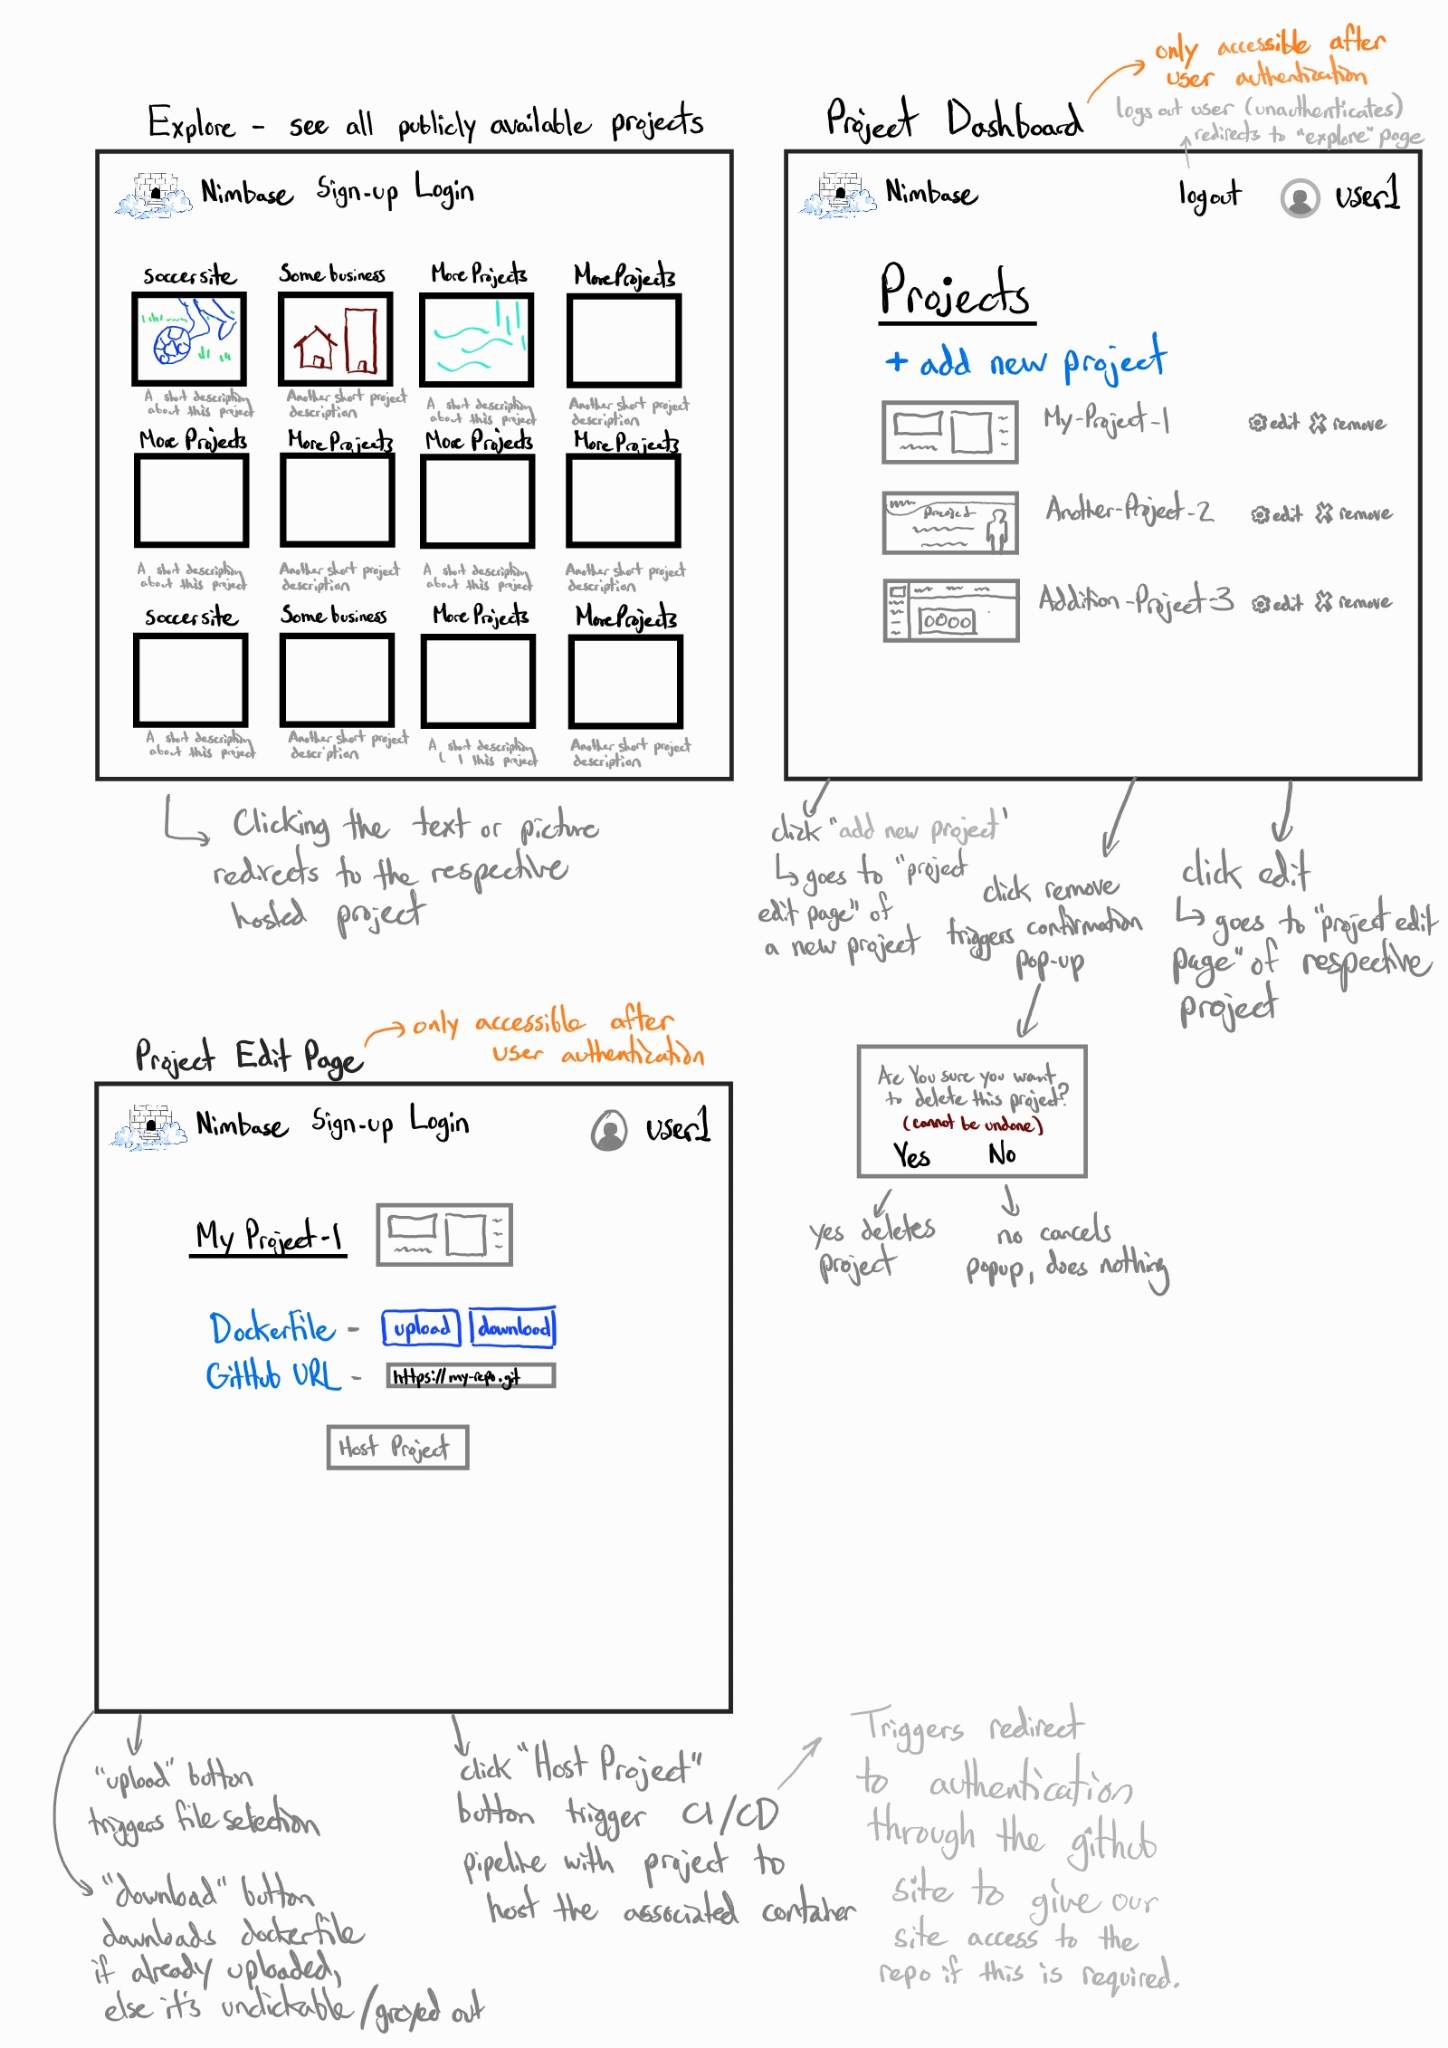 Explore - see all publicly available projects
Nimbase Sign-up Login
Soccer site
Some business
More Projects
More Projects
A short description
about this project
Another short project
description
A short description
about this project
Another short project
description
More Projects
More Projects
More Projects
More Projects
A short description
about this project
Another short project
description
A short description
about this project
Another short project
description
Soccer site
Some business
More Projects
More Projects
A short description
about this project
Another short project
description
A short description
this project
Another short project
description
Clicking the text or picture
redirects to the respective
hosted project
only accessible after
user authentication
Project Dashboard
logs out user (unauthenticates)
redirects to "explore" page
Nimbase
logout
user1
Projects
+ add new project
My-Project-1
edit
remove
Project
Another-Project-2
edit
remove
Addition-Project-3
edit
remove
click "add new project"
goes to "project
edit page" of
a new project
click remove
triggers confirmation
pop-up
click edit
goes to "project edit
page" of respective
project
Are You sure you want
to delete this project?
(cannot be undone)
Yes No
yes deletes
project
no cancels
popup, does nothing
Project Edit Page
only accessible after
user authentication
Nimbase Sign-up Login
user1
My Project-1
Dockerfile - upload download
GitHub URL - https://my-repo.git
Host Project
"upload" button
triggers file selection
"download" button
downloads dockerfile
if already uploaded,
else it's unclickable/greyed out
click "Host Project"
button trigger CI/CD
pipeline with project to
host the associated container
Triggers redirect
to authentication
through the github
site to give our
site access to the
repo if this is required.